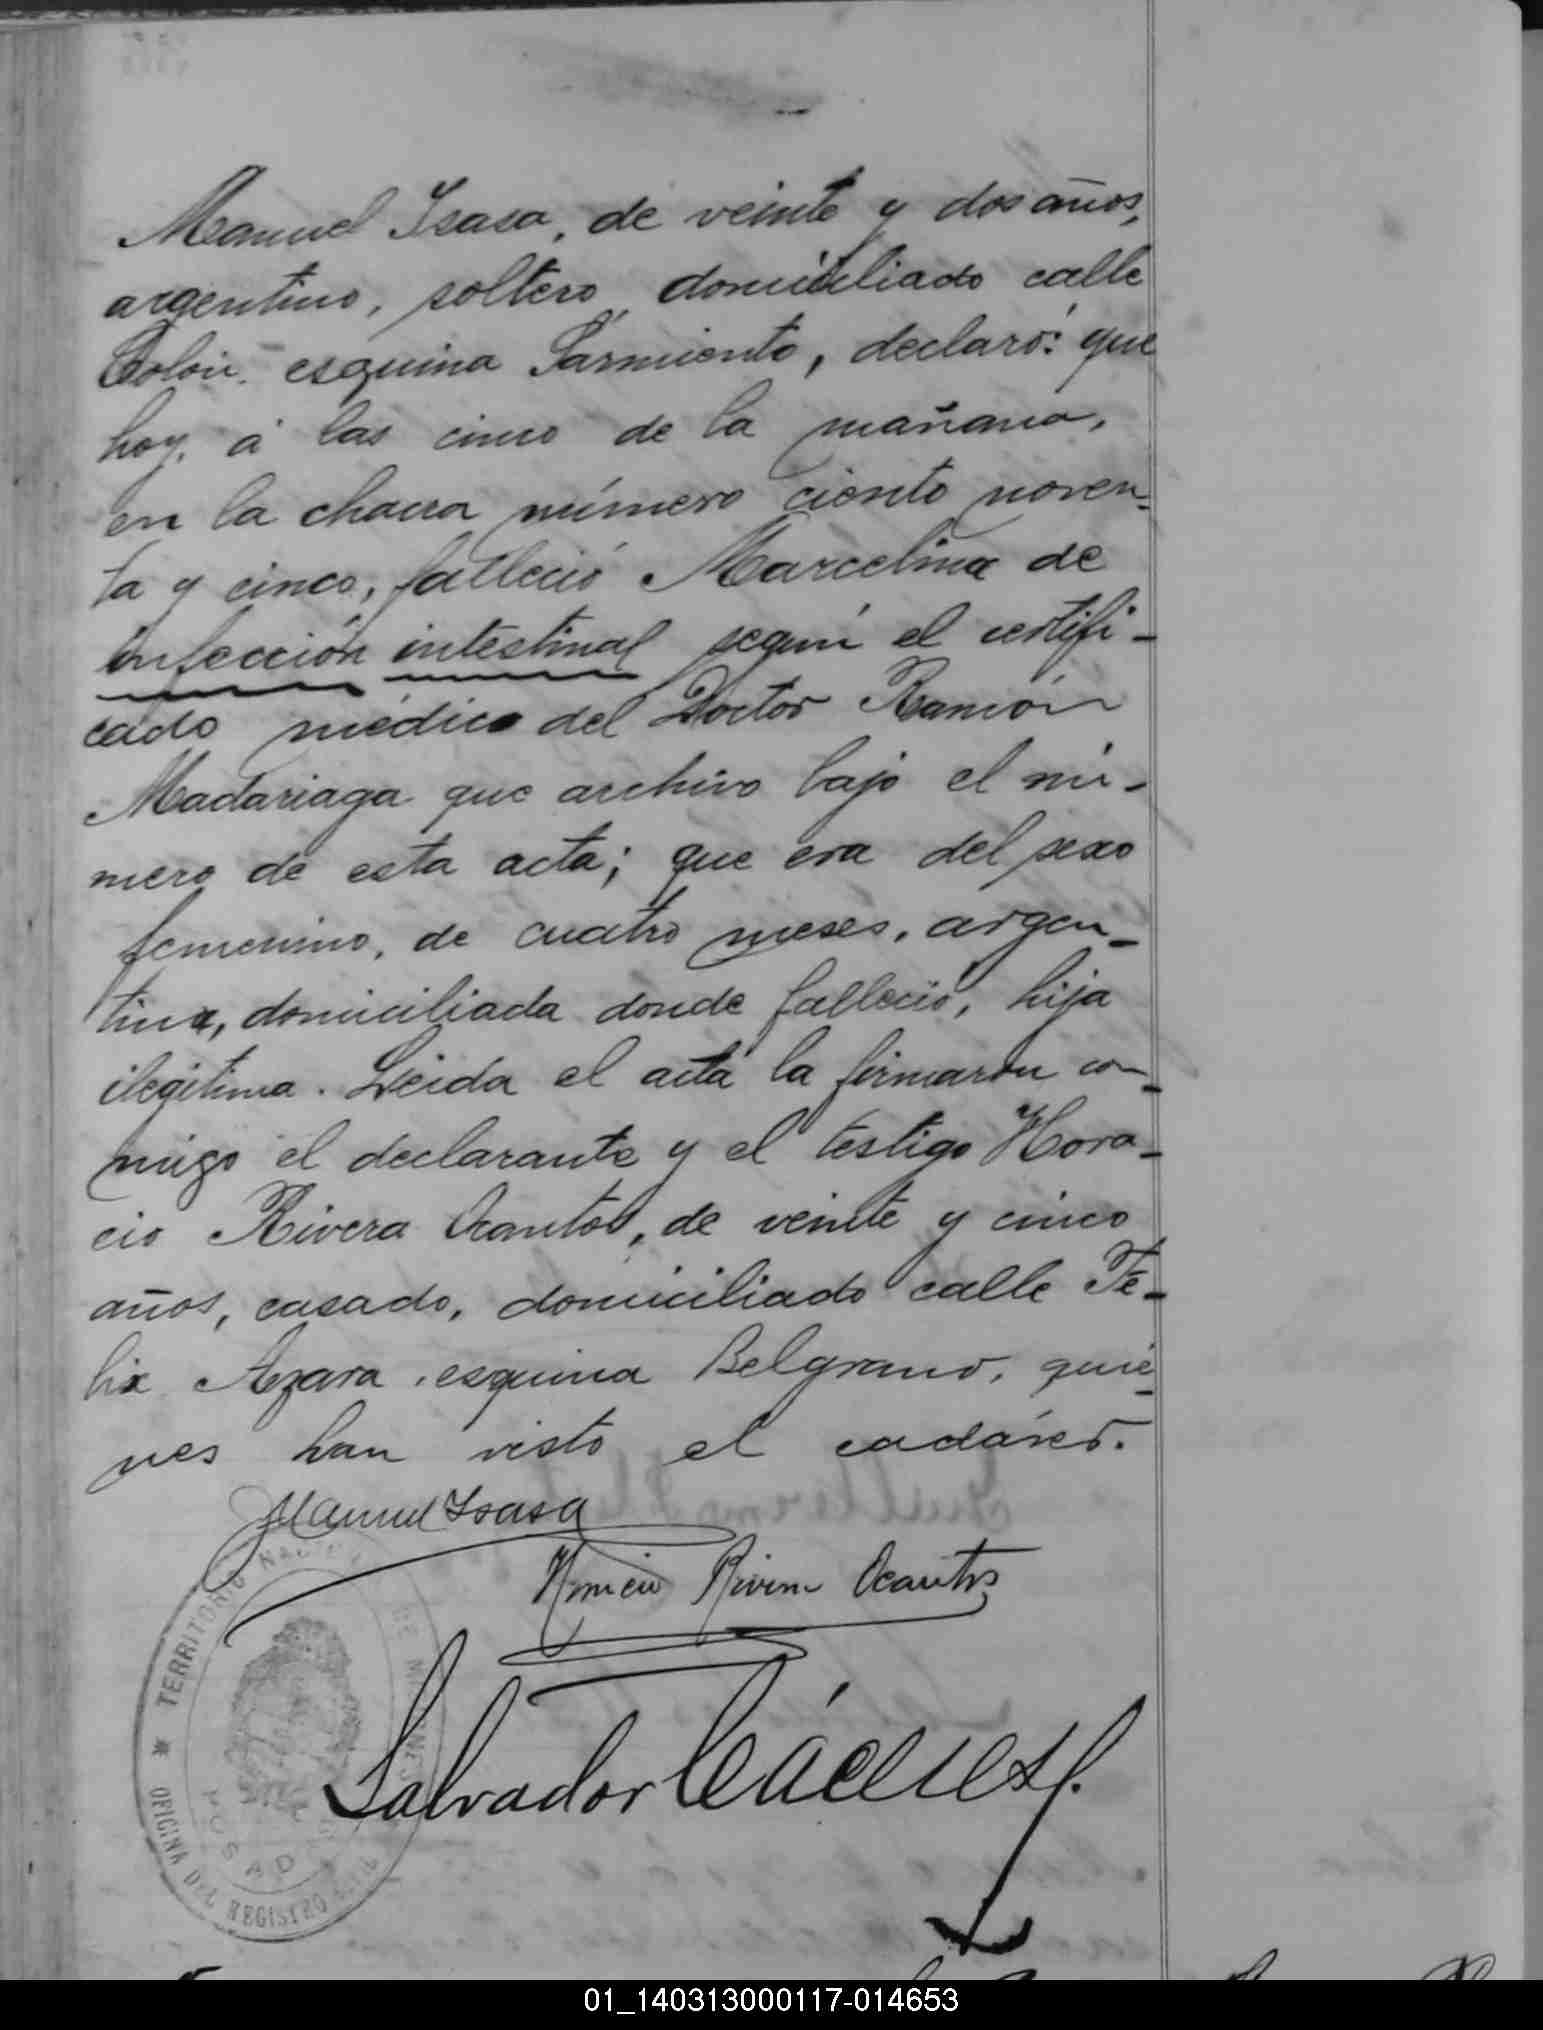 Manuel Isasa, de veinte y dos años,
argentino, soltero, domiciliado calle
Colón esquina Sarmiento, declaró: que
hoy, á las cinco de la mañana,
en la chacra número ciento noven-
ta y cinco, falleció Marcelina de
infección intestinal según el certifi-
cado médico del Doctor Ramón
Madariaga que archivo bajo el nú-
mero de esta acta; que era del sexo
femenino, de cuatro meses, argen-
tina, domiciliada donde falleció, hija
ilegítima. Leida el acta la firmaron con-
migo el declarante y el testigo Hora-
cio Rivera Ocantos, de veinte y cinco
años, casado, domiciliado calle Fe-
lix Azara esquina Belgrano, quie-
nes han visto el cadáver.
Manuel Isasa
Horacio Rivera Ocantos
Salvador Cáceres
TERRITORIO NACIONAL DE MISIONES
OFICINA DEL REGISTRO CIVIL
POSADAS
01_140313000117-014653